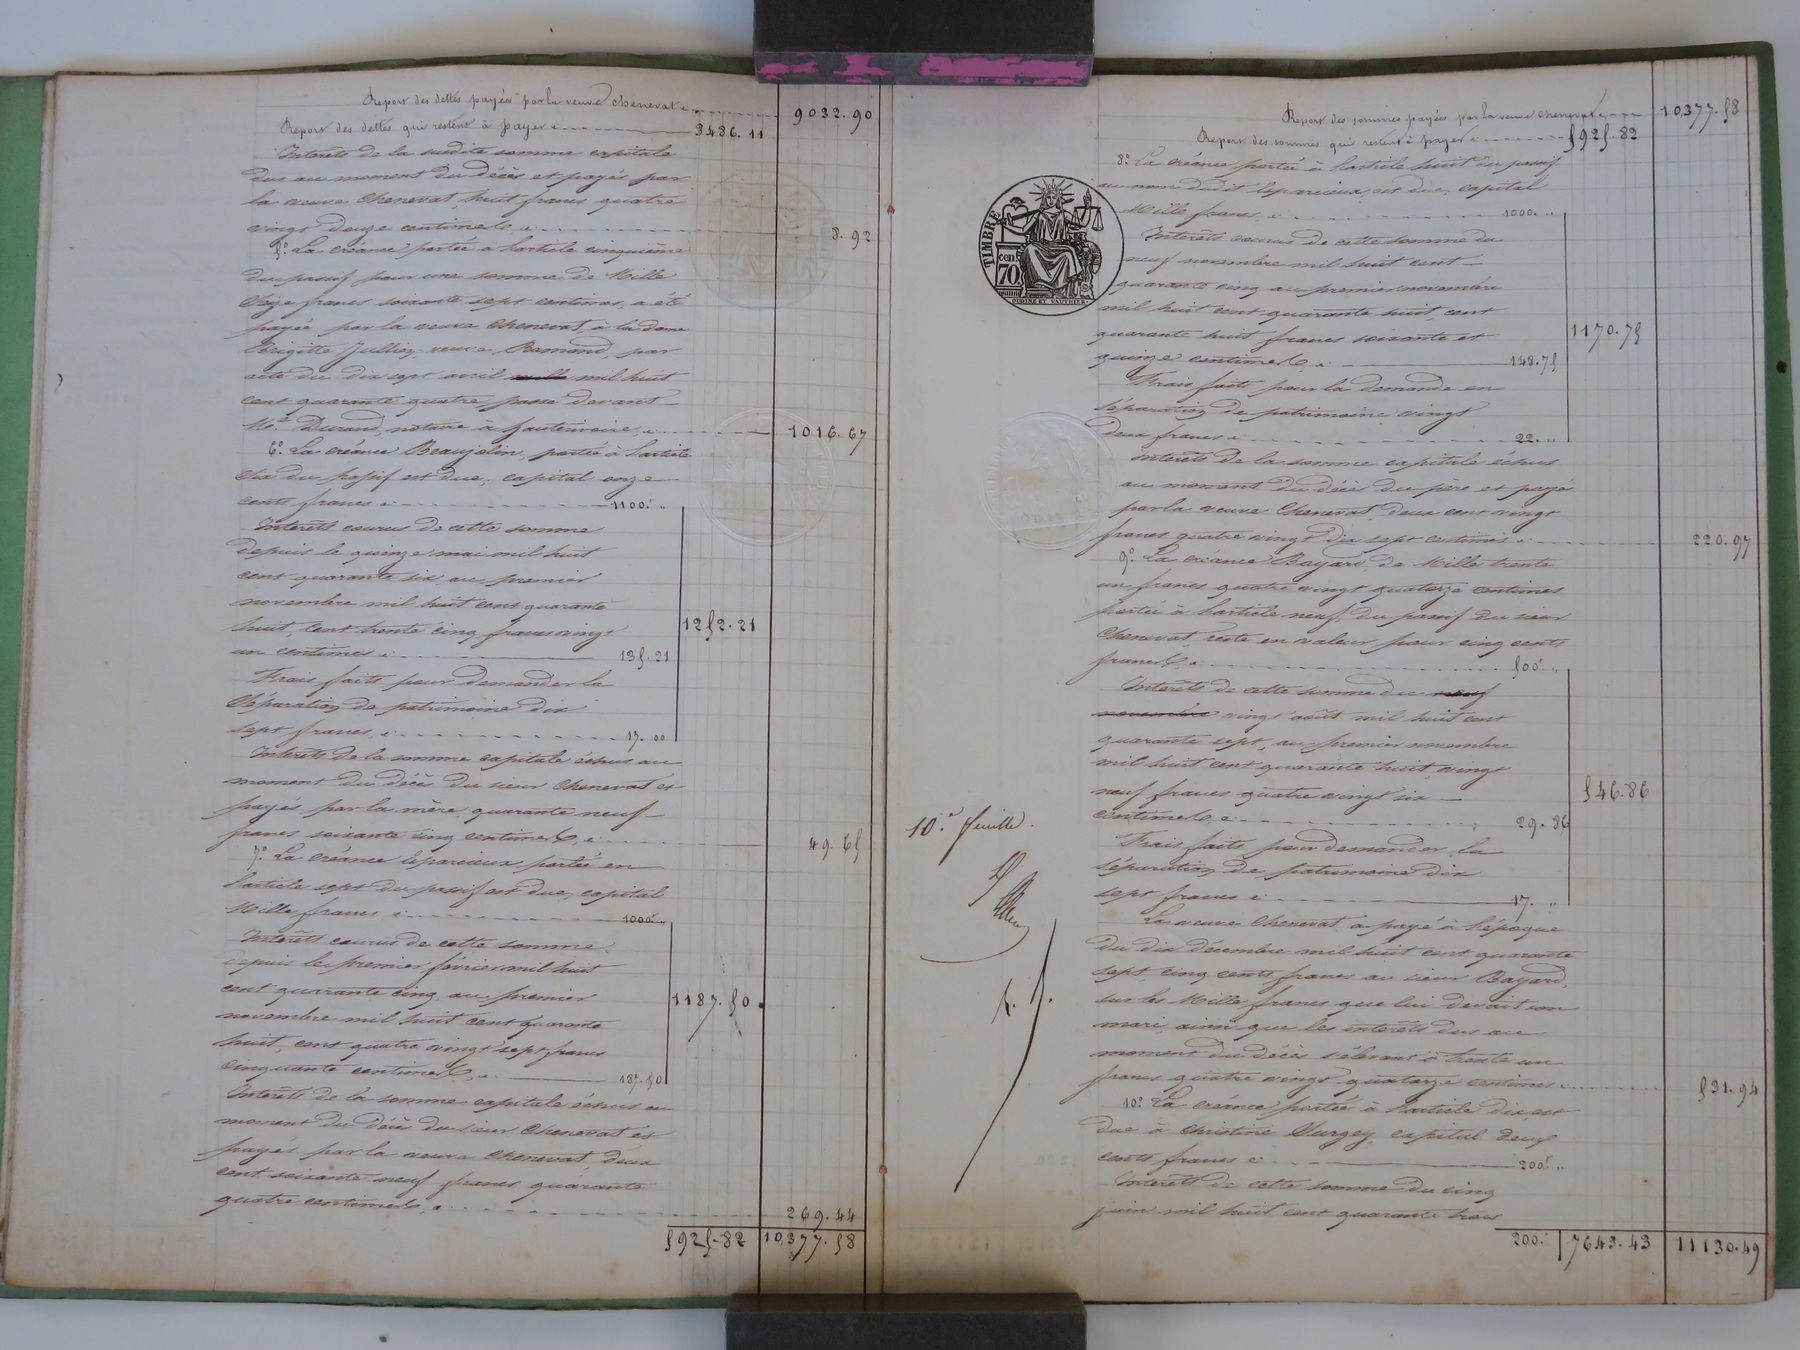 Report des dettes payées par la veuve Chenevat c. 9032.90
Report des dettes qui restent à payer c. 3486.11
Intérêts de la susdite somme capitale
dus au moment du décès et payés par
la veuve Chenevat huit francs quatre
vingt douze centimes c. 8.92
5º La créance portée à l'article cinquième
du passif pour une somme de Mille
Seize francs soixante sept centimes, a été
payée par la veuve Chenevat à la dame
Brigitte Jullien veuve, par
acte du dix sept avril mil huit
cent quarante quatre passé devant
Me Durand, notaire à c. 1016.67
6º La créance Beaujolin, portée à l'article
six du passif est due, capital onze
cents francs c. 1100. "
Intérêts courus de cette somme
depuis le quinze mai mil huit
cent quarante six au premier
novembre mil huit cent quarante
huit, cent trente cinq francs vingt
un centimes c. 135.21
1252.21
Frais faits pour demander la
Séparation de patrimoine dix
sept francs c. 17.00
Intérêts de la somme capitale échus au
moment du décès du sieur Chenevat et
payés par la mère quarante neuf
francs soixante cinq centimes, c. 49.65
7º La créance Leparcieux portée en
l'article sept du passif est due, capital
Mille francs c. 1000f "
Intérêts courus de cette somme
depuis le premier février mil huit
cent quarante cinq au premier
novembre mil huit cent quarante
huit, cent quatre vingt sept francs
cinquante centimes, c. 187.50
1187.50
Intérêts de la somme capitale échus au
moment du décès du sieur Chenevat et
payés par la veuve Chenevat deux
cent soixante neuf francs quarante
quatre centimes, c. 269.44
5925.82 10377.58
Report des sommes payées par la veuve Chenevat c. 10377.58
Report des sommes qui restent à payer c. 5925.82
8º La créance portée à l'article huit du passif
au nom dudit Leparcieux, est due, capital
Mille francs c. 1000. "
TIMBRE
cen.
70
Intérêts courus de cette somme du
neuf novembre mil huit cent
quarante cinq au premier novembre
mil huit cent quarante huit, cent
quarante huit francs soixante et
quinze centimes c. 148.75
1170.75
Frais faits pour la demande en
séparation de patrimoine vingt
deux francs c. 22. "
Intérêts de la somme capitale échus
au moment du décès du père et payé
par la veuve Chenevat deux cent vingt
francs quatre vingt dix sept centimes c. 220.97
9º La créance Bayard de Mille trente
un francs quatre vingt quatorze centimes
portée à l'article neuf du passif du sieur
Chenevat, reste en valeur pour cinq cents
francs c. 500. "
Intérêts de cette somme du neuf
novembre vingt août mil huit cent
quarante sept, au premier novembre
mil huit cent quarante huit, vingt
neuf francs quatre vingt six
centimes, c. 29.86
546.86
Frais faits pour demander la
séparation de patrimoine dix
sept francs c. 17. "
10.e feuille
La veuve Chenevat a payé à l'époque
du dix décembre mil huit cent quarante
sept, cinq cents francs au sieur Bayard,
sur les Mille francs que lui devait son
mari, ainsi que les intérêts dus au
moment du décès s'élevant à trente un
francs quatre vingt quatorze centimes c. 531.94
10º La créance portée à l'article dix, est
due à Christine Surgey, capital deux
cents francs c. 200f "
Intérêts de cette somme du cinq
juin mil huit cent quarante trois
200. 7643.43 11130.49